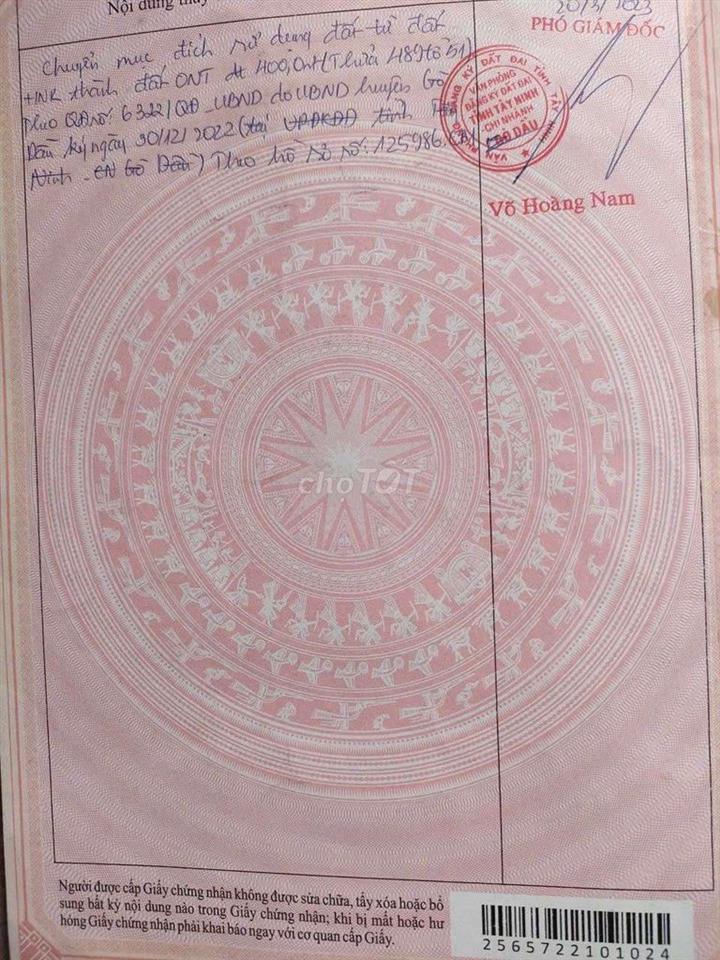 Nội dung thay
20/3/2023
PHÓ GIÁM ĐỐC
Chuyển mục đích sử dụng đất từ đất
HNK thành đất ONT dt 400,0m² (Thửa 48 tờ 51)
Theo QĐ số: 6322/QĐ-UBND do UBND huyện Gò
Dầu ký ngày 30/12/2022 (tại VPĐKĐĐ tỉnh
Ninh - CN Gò Dầu) Theo hồ sơ số: 125986.
VĂN PHÒNG ĐĂNG KÝ ĐẤT ĐAI TỈNH TÂY NINH
VĂN PHÒNG
ĐĂNG KÝ ĐẤT ĐAI
TỈNH TÂY NINH
CHI NHÁNH
GÒ DẦU
Võ Hoàng Nam
choTỐT
Người được cấp Giấy chứng nhận không được sửa chữa, tẩy xóa hoặc bổ
sung bất kỳ nội dung nào trong Giấy chứng nhận; khi bị mất hoặc hư
hỏng Giấy chứng nhận phải khai báo ngay với cơ quan cấp Giấy.
2565722101024